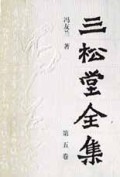 三松堂全集
冯友兰 著
第五卷